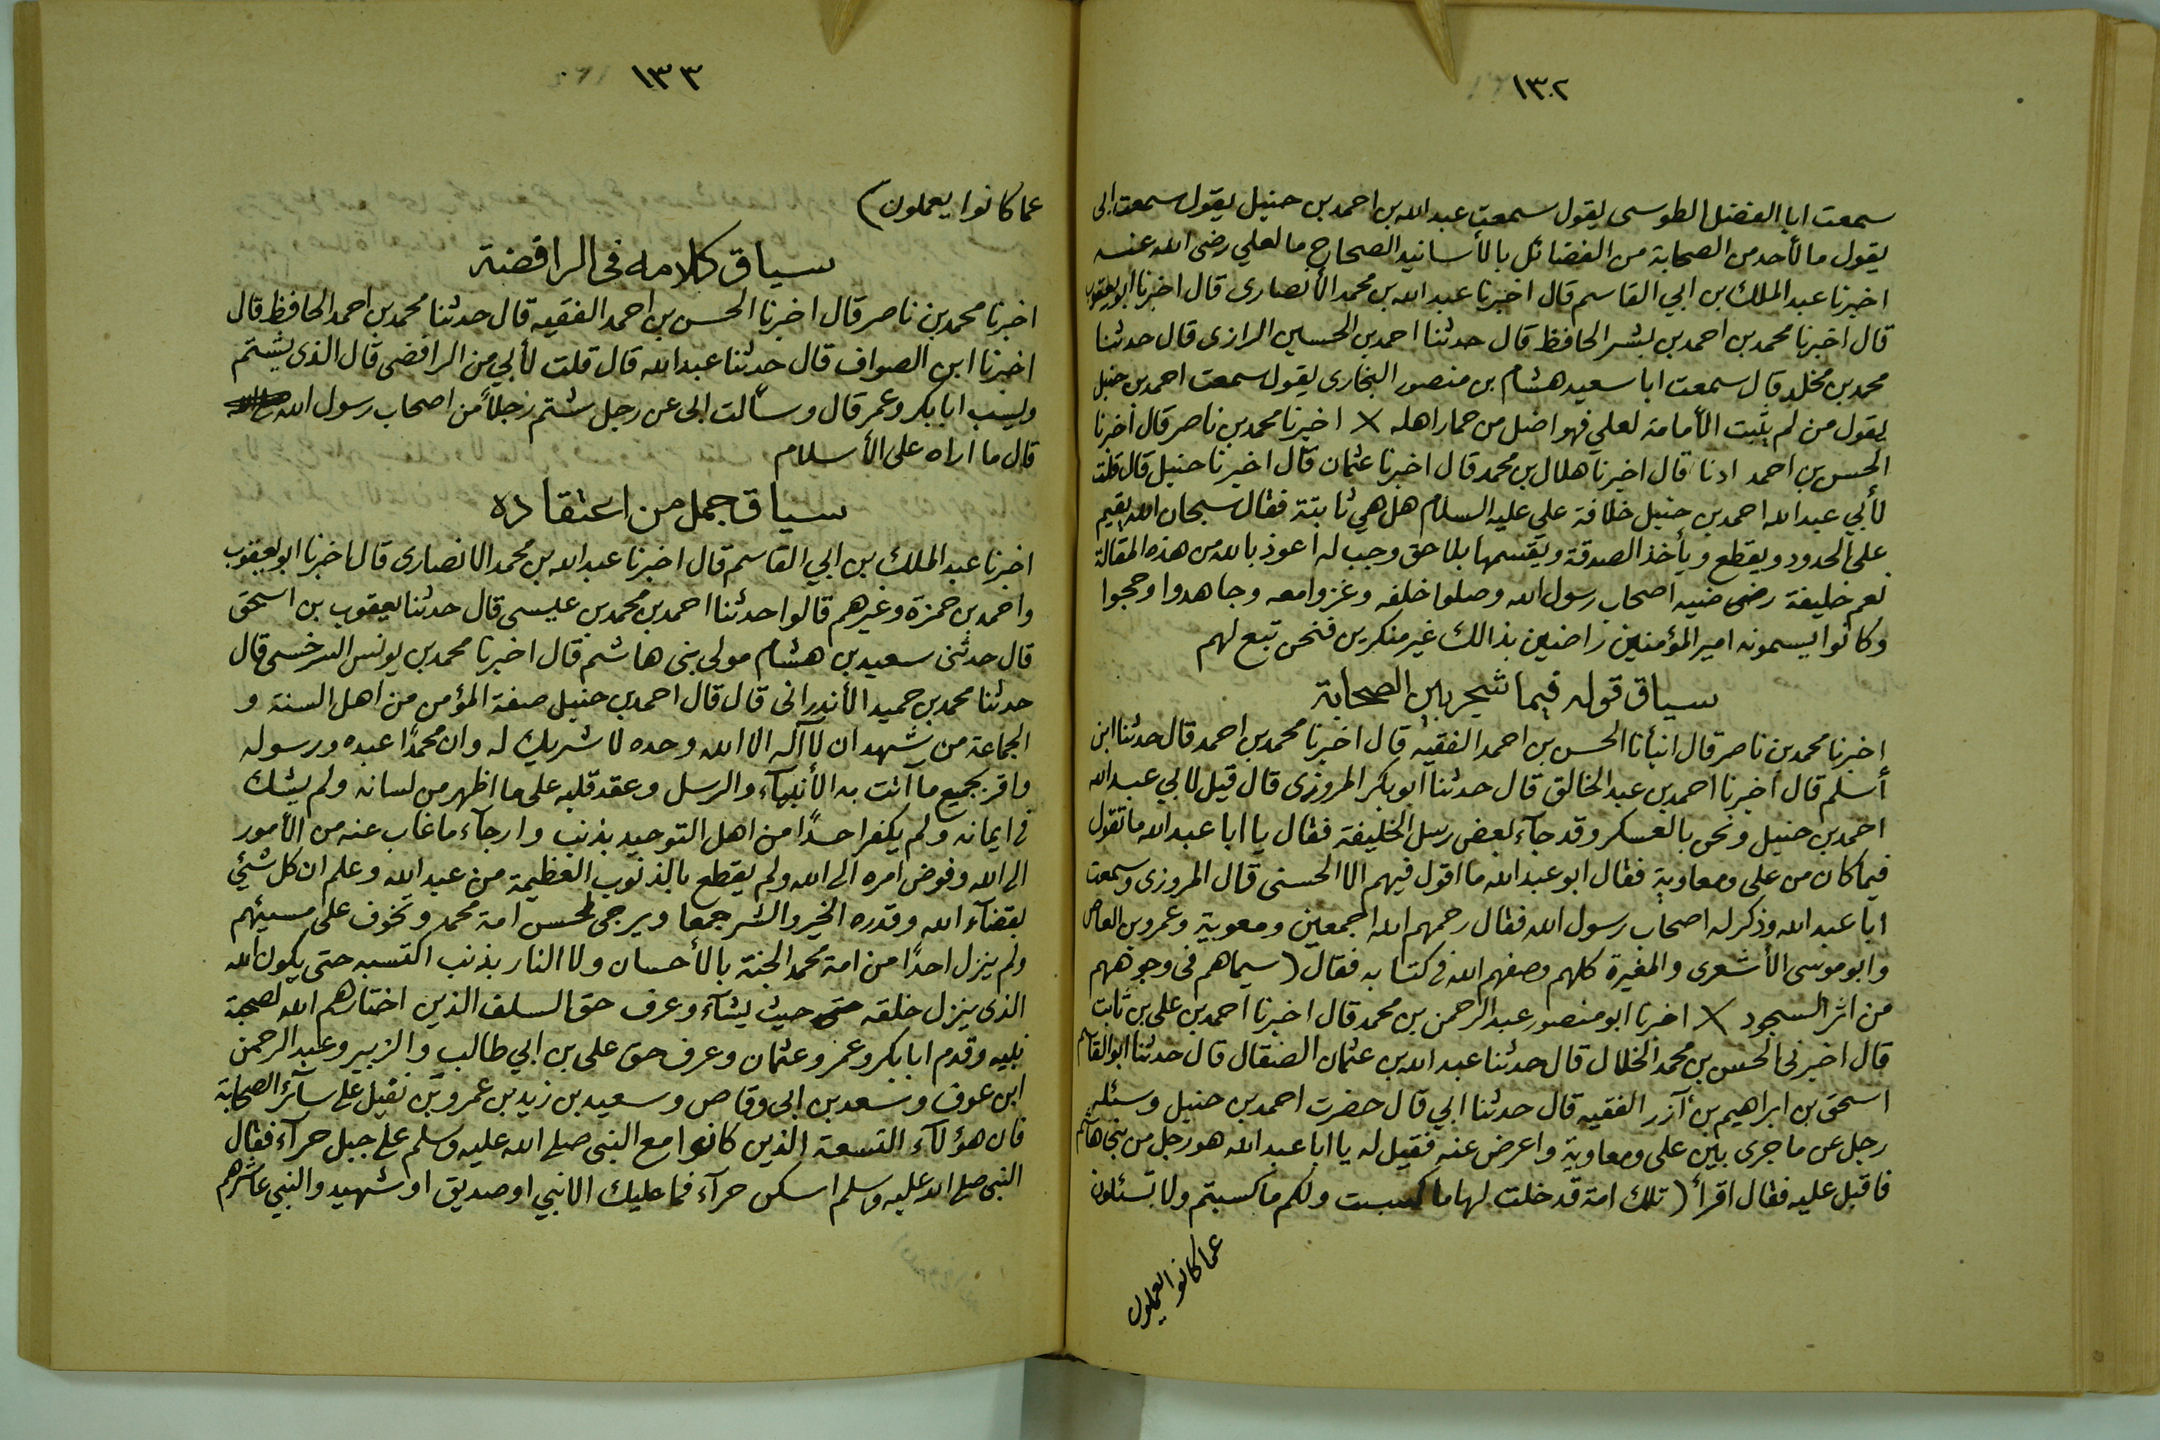 ١٣٢
سمعت ابا الفضل الطوسى يقول سمعت عبد الله بن احمد بن حنبل يقول سمعت ابى
يقول ما لأحد من الصحابة من الفضائل بالأسانيد الصحاح ما لعلي رضى الله عنه
اخبرنا عبد الملك بن ابي القاسم قال اخبرنا عبد الله بن محمد الأنصارى قال اخبرنا ابو يعقوب
قال اخبرنا محمد بن احمد بن بشر الحافظ قال حدثنا احمد بن الحسين الرازى قال حدثنا
محمد بن مخلد قال سمعت ابا سعيد هشام بن منصور البخارى يقول سمعت احمد بن حنبل
يقول من لم يثبت الأمامة لعلي فهو اضل من حمار اهله × اخبرنا محمد بن ناصر قال أخبرنا
الحسن بن احمد ادنا قال اخبرنا هلال بن محمد قال اخبرنا عثمان قال اخبرنا حنبل قال قلت
لأبي عبد الله احمد بن حنبل خلافة علي عليه السلام هل هي ثابتة فقال سبحان الله يقيم
علي الحدود ويقطع ويأخذ الصدقة ويقسمها بلا حق وجب له اعوذ بالله من هذه المقالة
نعم خليفة رضى ضيه اصحاب رسول الله وصلوا خلفه وغزوا معه وجاهدوا وحجوا
وكانوا يسمونه امير المؤمنين راضين بذالك غير منكرين فنحن تبع لهم
سياق قوله فيما شجر باين الصحابة
اخبرنا محمد بن ناصر قال انبأنا الحسن بن احمد الفقيه قال اخبرنا محمد بن احمد قال حدثنا ابن
أسلم قال اخبرنا احمد بن عبد الخالق قال حدثنا ابو بكر المروزى قال قيل لابي عبد الله
احمد بن حنبل ونحن بالعسكر وقد جآء بعض رسل الخليفة فقال يا ابا عبد الله ما تقول
فيما كان من على ومعاوية فقال ابو عبد الله ما اقول فيهم الا الحسنى قال المروزى وسمعت
ابا عبد الله وذكر له اصحاب رسول الله فقال رحمهم الله اجمعين ومعوية وعمرو بن العاص
وابو موسى الأشعرى والمغيرة كلهم وصفهم الله فى كتابه فقال (سيماهم فى وجوههم
من اثر السجود × اخبرنا ابو منصور عبد الرحمن بن محمد قال اخبرنا احمد بن على بن ثابت
قال اخبرنى الحسن بن محمد الخلال قال حدثنا عبد الله بن عثمان الصنقال قال حدثنا ابو القاسم
اسحق بن ابراهيم بن آزر الفقيه قال حدثنا ابي قال حضرت احمد بن حنبل وسئله
رجل عن ما جرى باين على ومعاوية واعرض عنه فقيل له يا ابا عبد الله هو رجل من بنى هاشم
فاقبل عليه فقال اقرأ (تلك امة قد خلت لها ما كسبت ولكم ما كسبتم ولا تسئلون
عما كانوا يعملون
١٣٣
عما كانوا يعملون)
سياق كلامه فى الرافضة
اخبرنا محمد بن ناصر قال اخبرنا الحسن بن احمد الفقيه قال حدثنا محمد بن احمد الحافظ قال
اخبرنا ابن الصواف قال حدثنا عبد الله قال قلت لأبي من الرافضى قال الذى يشتم
ويسب ابا بكر وعمر قال وسألت ابى عن رجل شتم رجلاً من اصحاب رسول الله
قال ما اراه على الأسلام
سياق جمل من اعتقاده
اخبرنا عبد الملك بن ابي القاسم قال اخبرنا عبد الله بن محمد الانصارى قال اخبرنا ابو يعقوب
واحمد بن حمزة وغيرهم قالوا حدثنا احمد بن محمد بن عليسى قال حدثنا يعقوب بن اسحق
قال حدثنى سعيد بن هشام مولى بنى هاشم قال اخبرنا محمد بن يونس السرخسى قال
حدثنا محمد بن حميد الأندرانى قال قال احمد بن حنبل صفة المؤمن من اهل السنة و
الجماعة من شهد ان لا آله الا الله وحده لا شريك له وان محمدًا عبده ورسوله
واقر بجميع ما آتت به الأنبيآء والرسل وعقد قلبه على ما اظهر من لسانه ولم يشك
فى ايمانه ولم يكفر احدًا من اهل التوحيد بذنب وارجآء ما غاب عنه من الأمور
الى الله وفوض امره الى الله ولم يقطع بالذنوب العظيمة من عبد الله وعلم ان كل شيئ
بقضآء الله وقدره الخير والشر جمعا ويرجى لمحسن امة محمد وتخوف على مسيئهم
ولم ينزل احدًا من امة محمد الجنة بالأحسان ولا النار بذنب اكتسبه حتى يكون الله
الذى ينزل خلقه حيث يشآء وعرف حق السلف الذين اختارهم الله لصحبة
نبيه وقدم ابا بكر وعمر وعثمان وعرف حق على بن ابي طالب والزبير وعبد الرحمن
ابن عوف وسعد بن ابى وقاص وسعيد بن زيد بن عمرو بن نفيل على سآئر الصحابة
فان هؤلآء التسعة الذين كانوا مع النبى صلى الله عليه وسلم على جبل حرآء فقال
النبى صلى الله عليه وسلم اسكن حرآء فما عليك الا نبي او صديق او شهيد والنبي عاشرهم